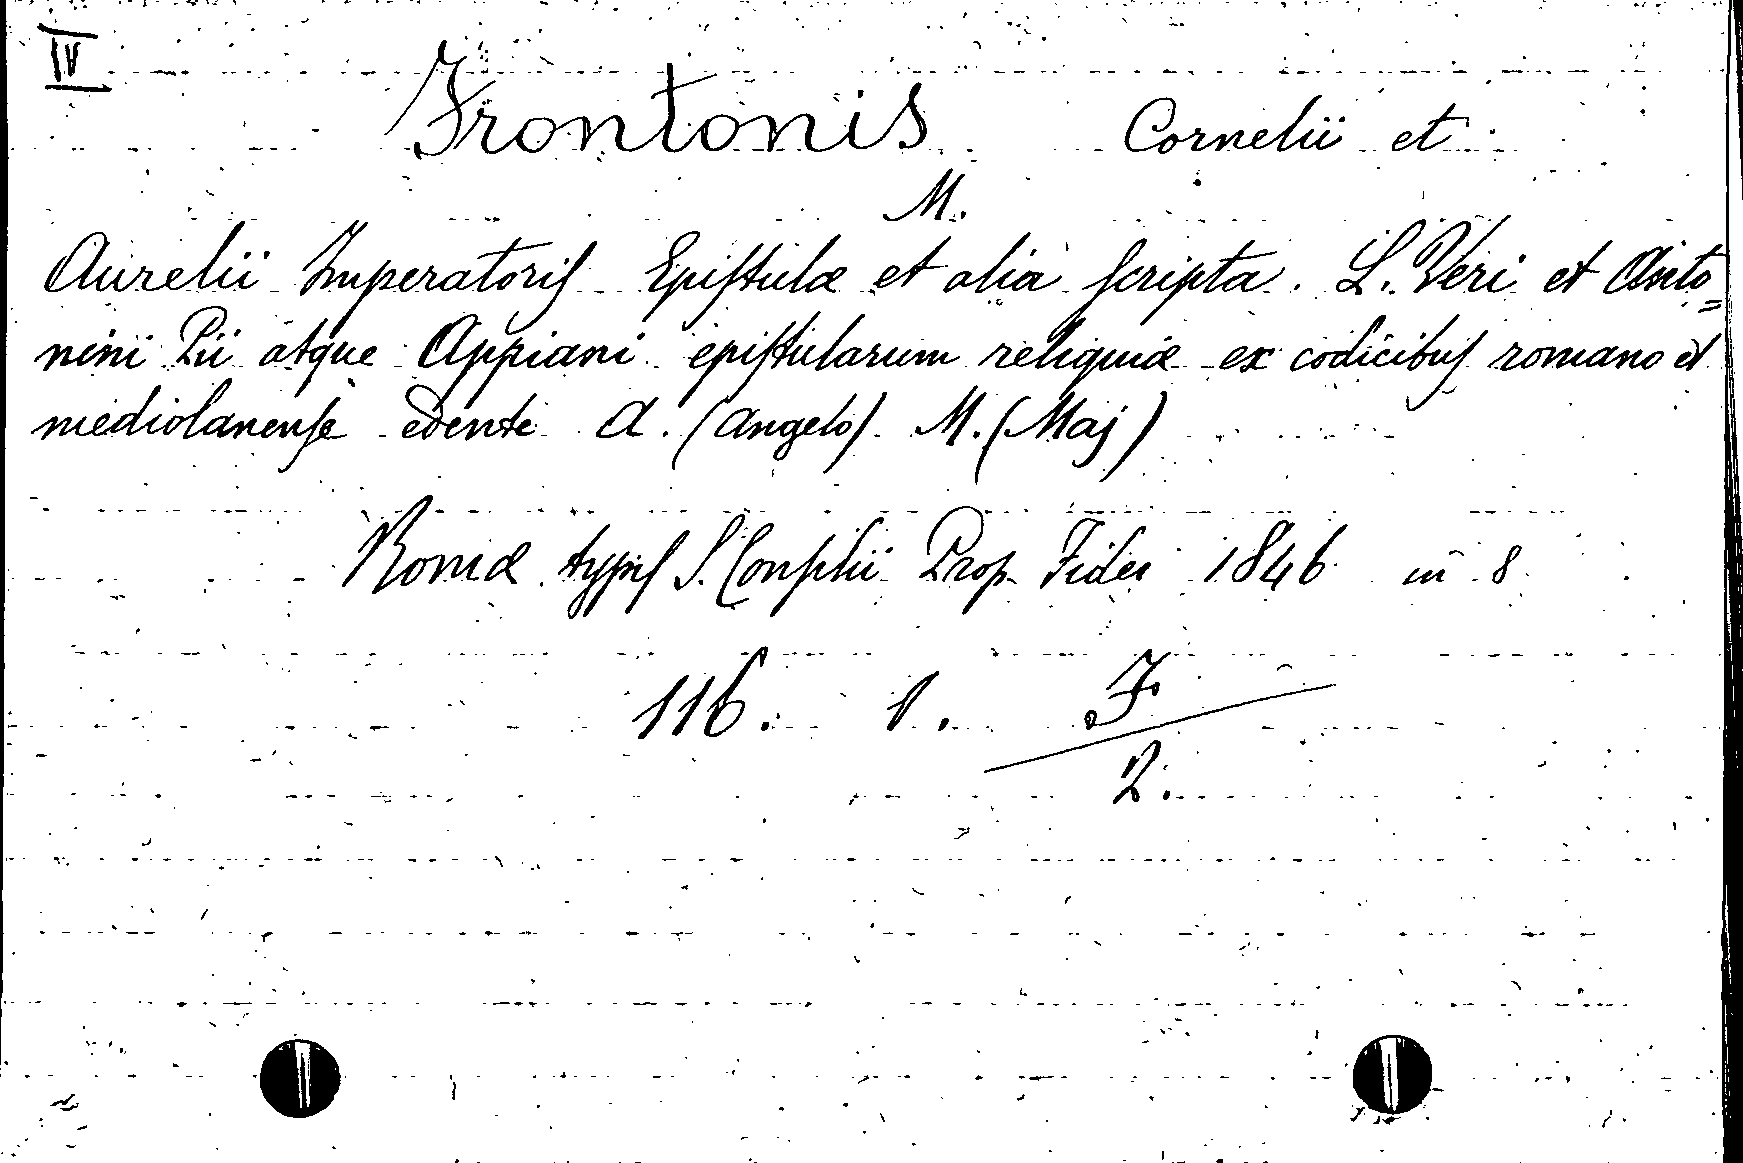 IV
Frontonis Cornelii et
M.
Aurelii Imperatoris Epistulæ et alia scripta. L. Veri et Anto=
nini Pii atque Appiani epistularum reliquiæ ex codicibus romano et
mediolanense edente A. (Angelo) M. (Maj)
Romæ typis S. Consilii Prop. Fidei 1846 in 8
116. 1. F
2.